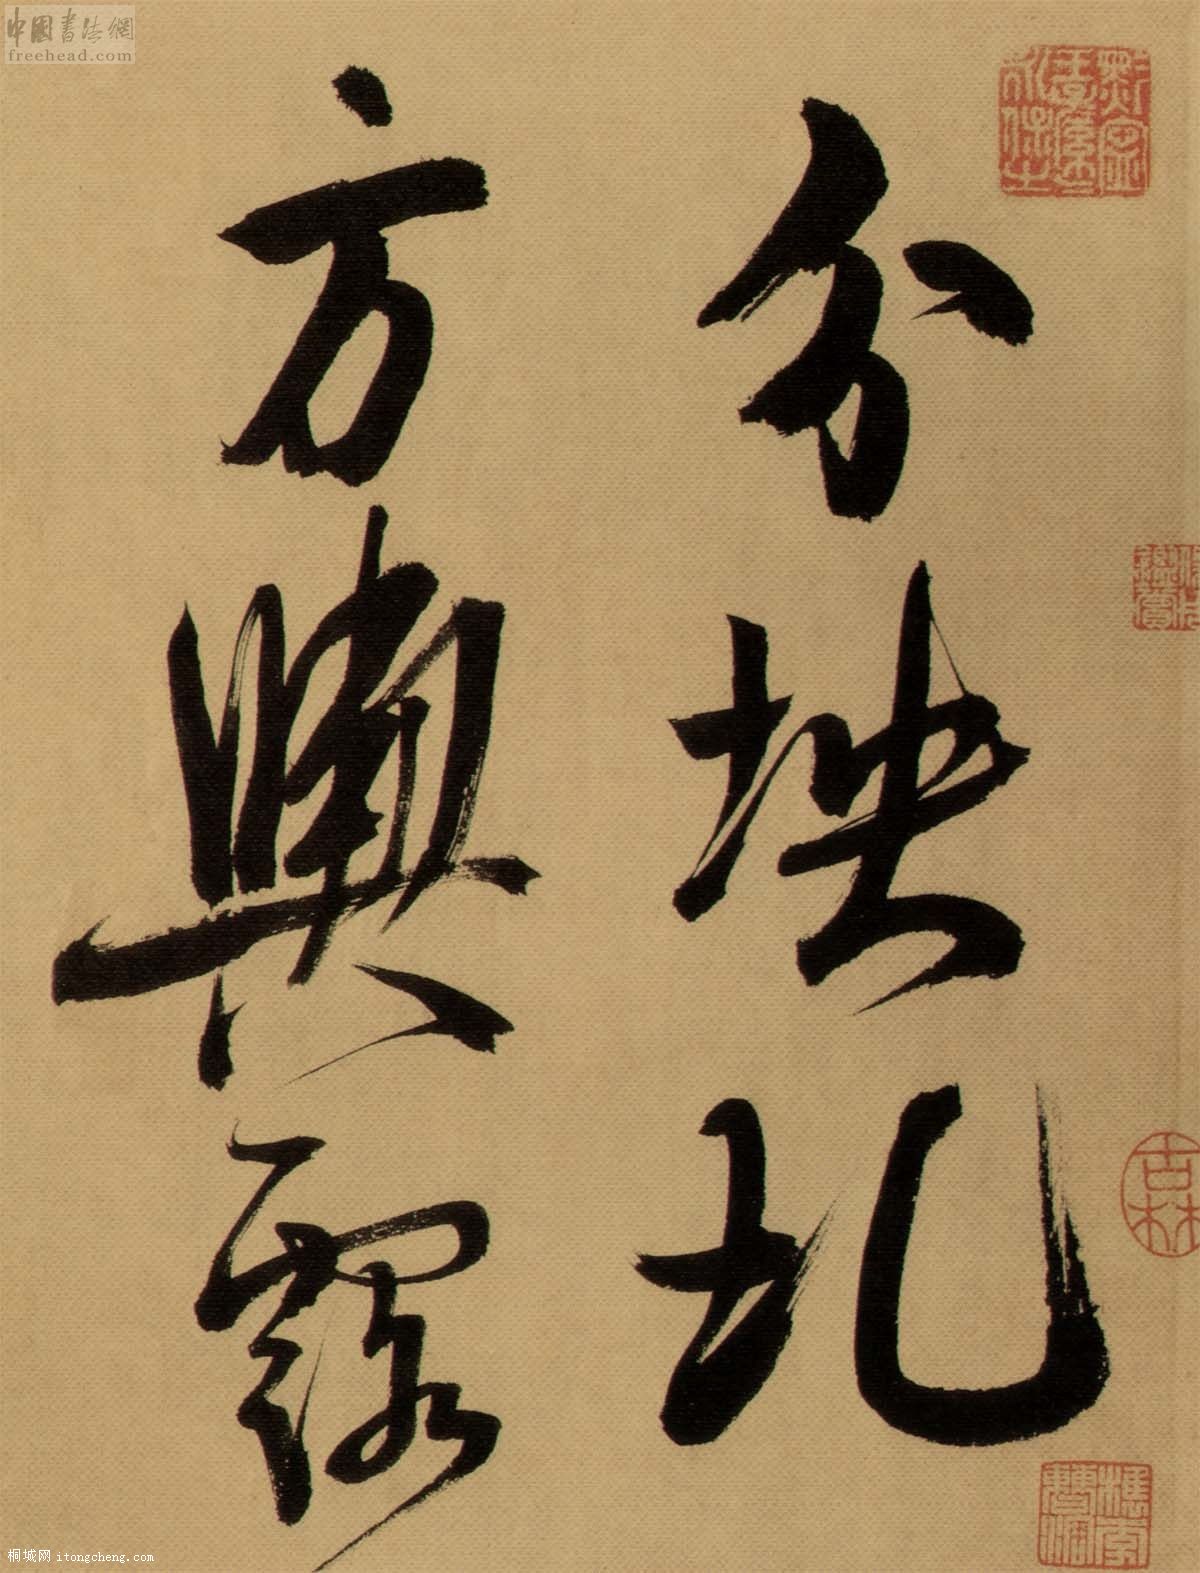 中國書法網
freehead.com
分坱圠
方輿露
古林
樵李
桐城网 itongcheng.com